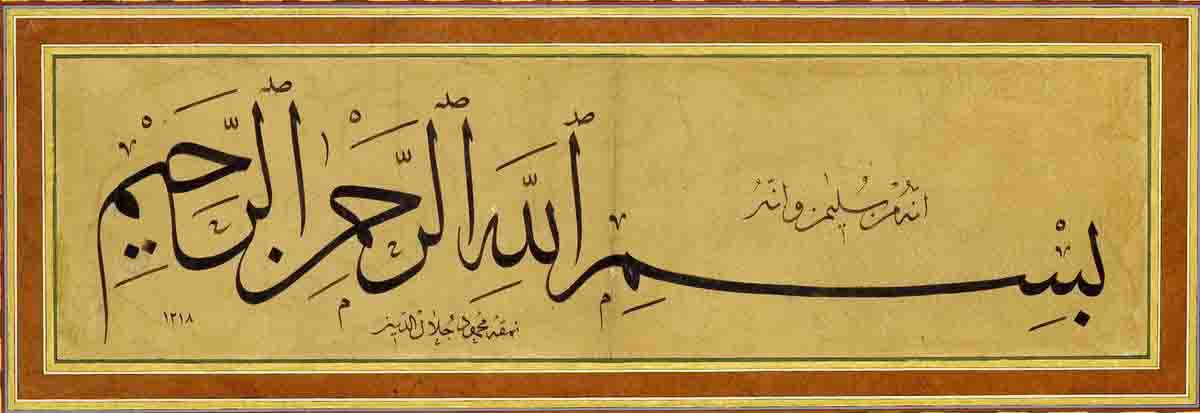 انه من سليمن وانه
بسم الله الرحمن الرحيم
نمقه محمود جلال الدين
١٢١٨